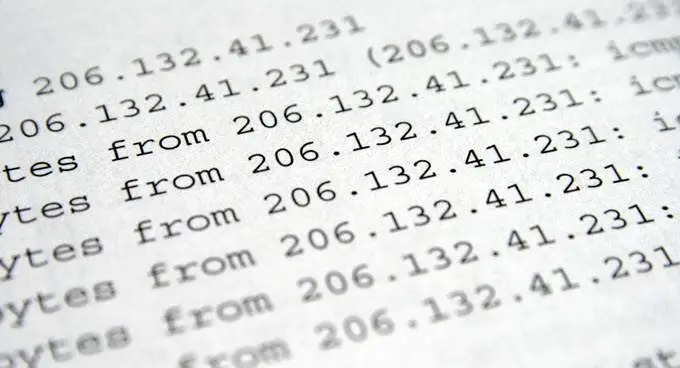 206.132.41.231
206.132.41.231 (206.132.41.23
tes from 206.132.41.231: icmp
ytes from 206.132.41.231: ic
ytes from 206.132.41.231: i
bytes from 206.132.41.231:
bytes from 206.132.41.231:
from 206.132.41.231